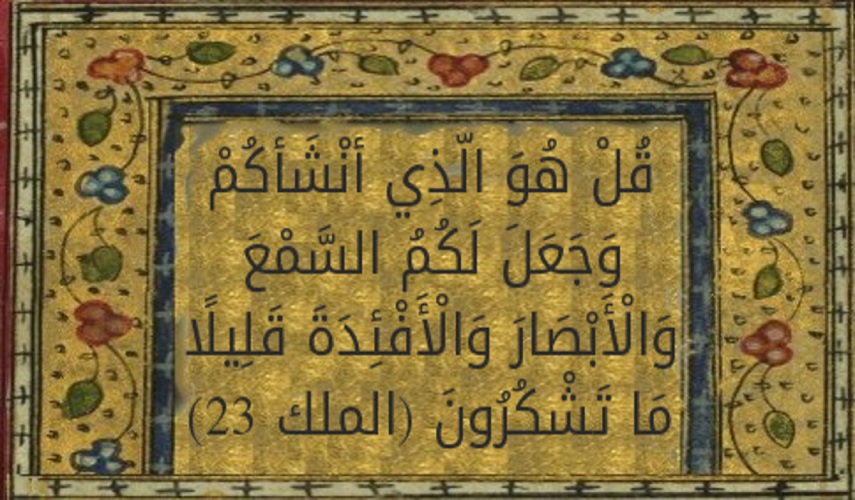 قُلْ هُوَ الّذِي أنْشَأكُمْ
وَجَعَلَ لَكُمُ السَّمْعَ
وَالْأَبْصَارَ وَالْأَفْئِدَةَ قَلِيلًا
مَا تَشْكُرُونَ (الملك 23)